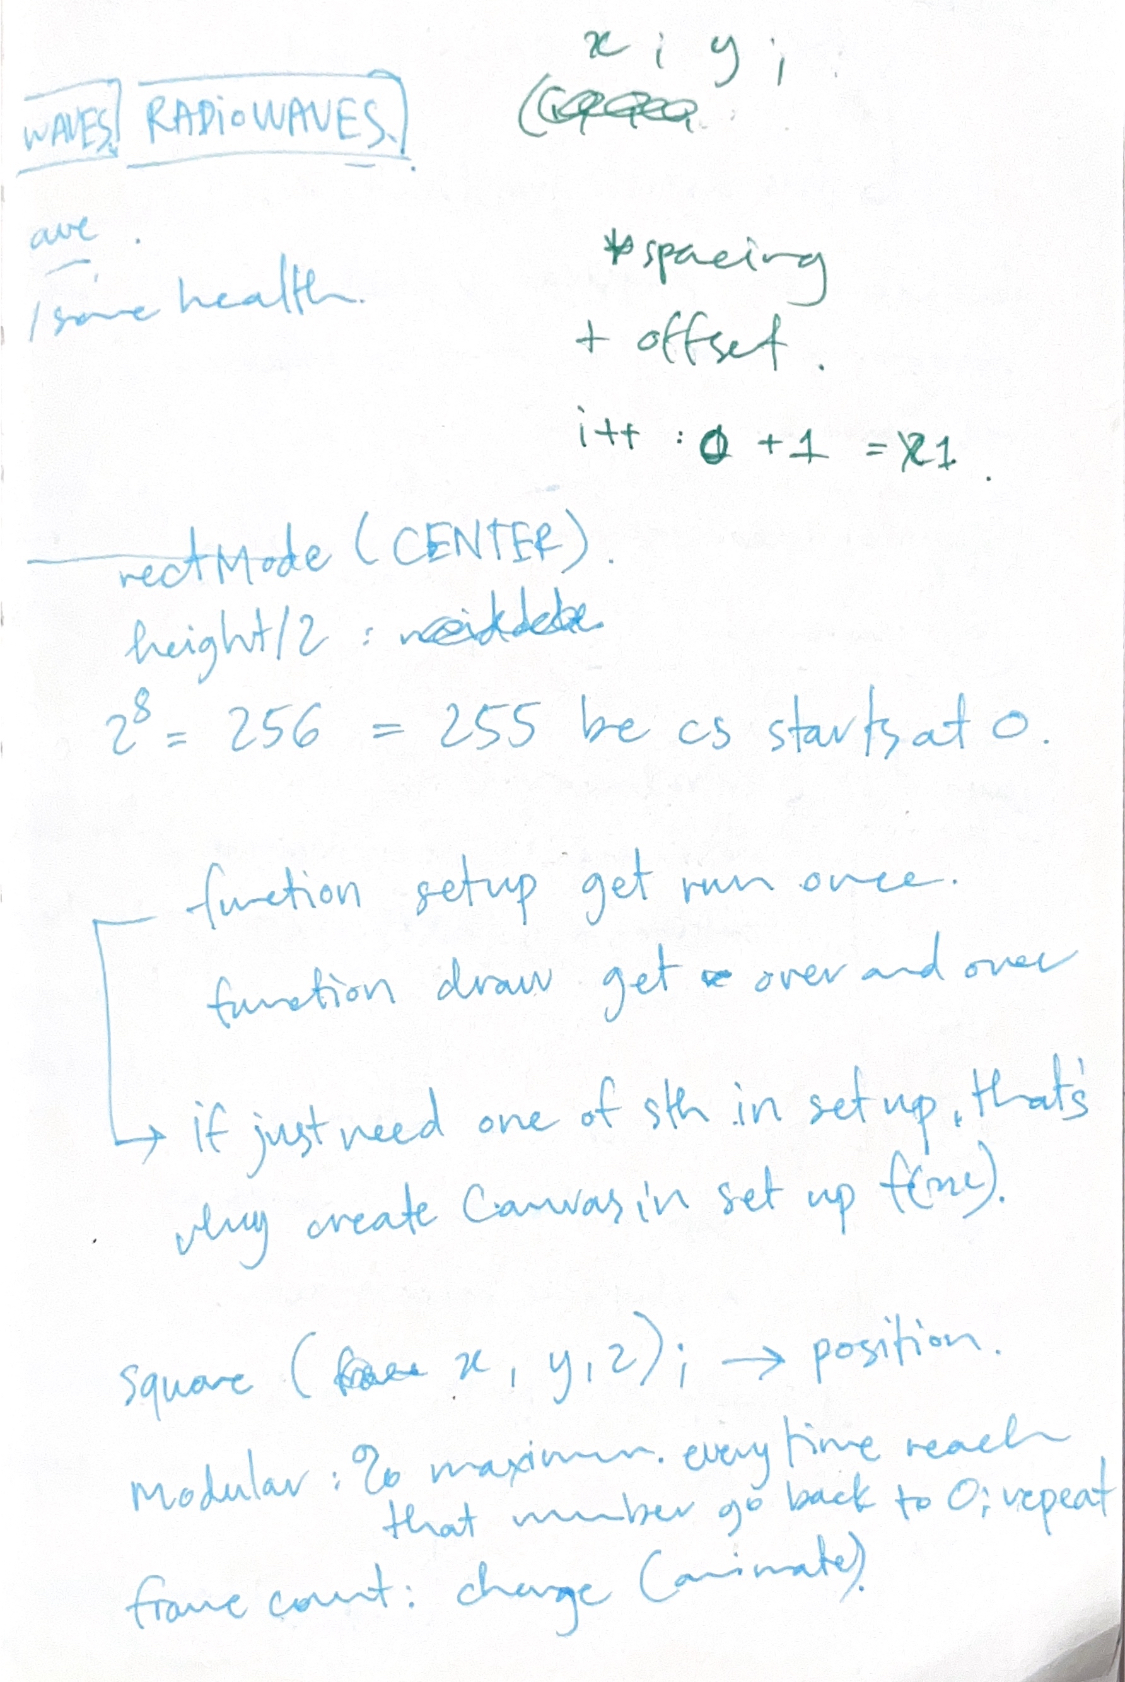 x ; y ;
WAVES. RADIOWAVES.
ave.
/ some health.
* spacing
+ offset.
i++ : 0 + 1 = 1.
rectMode (CENTER).
height/2 :
2⁸ = 256 = 255 be cs starts at 0.
function setup get run once.
function draw get over and over
→ if just need one of sth in set up, that's
why create Canvas in set up
square ( x, y, z); → position.
Modular : % maximum. every time reach
that number go back to 0; repeat
frame count : change (animate)